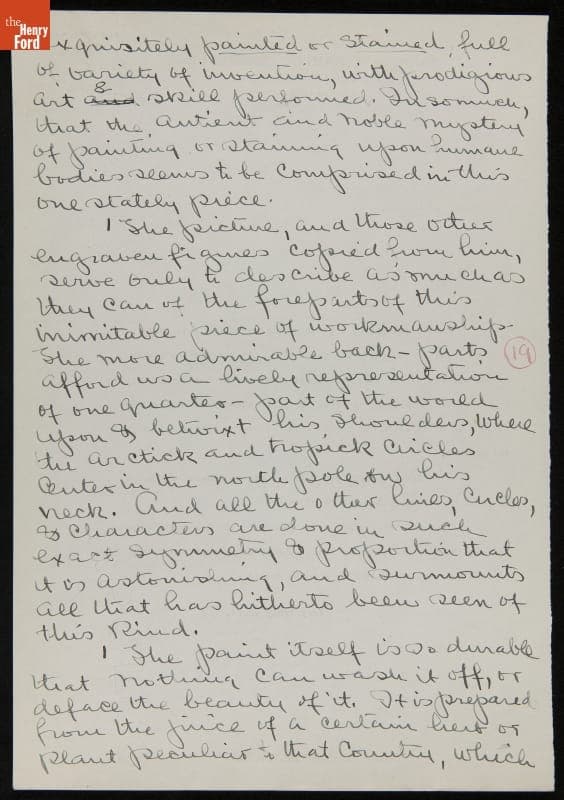 the
Henry
Ford
exquisitely painted or stained, full
of variety of invention, with prodigious
art and & skill performed. Insomuch,
that the antient and noble mystery
of painting or staining upon humane
bodies seems to be comprised in this
one stately piece.
' The picture, and those other
engraven figures copied from him,
serve only to describe as much as
they can of the foreparts of this
inimitable piece of workmanship.
The more admirable back-parts
19
afford us a lively representation
of one quarter-part of the world
upon & betwixt his shoulders, where
the arctick and tropick circles
center in the north pole on his
neck. And all the other lines, circles,
& characters are done in such
exact symmetry & proportion that
it is astonishing, and surmounts
all that has hitherto been seen of
this kind.
' The paint itself is so durable
that nothing can wash it off, or
deface the beauty of it. It is prepared
from the juice of a certain herb or
plant peculiar to that country, which